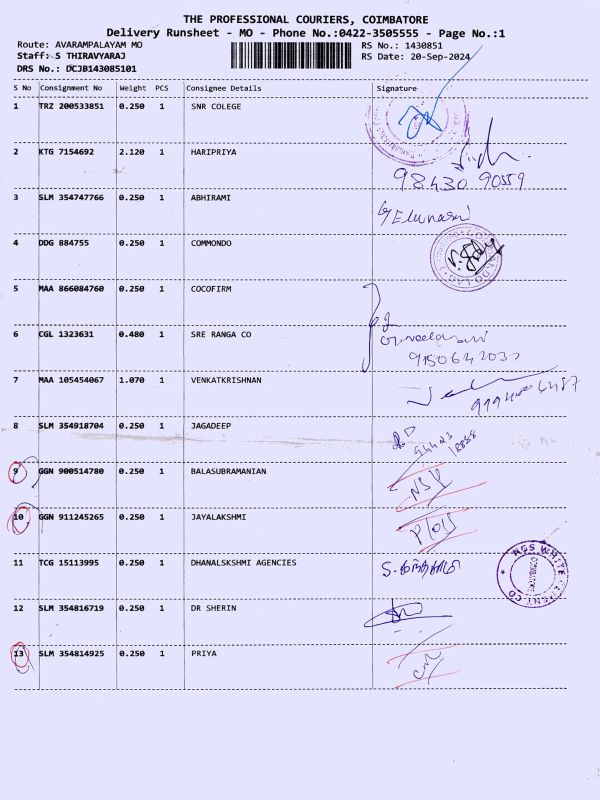 THE PROFESSIONAL COURIERS, COIMBATORE
Delivery Runsheet - MO - Phone No.:0422-3505555 - Page No.:1
Route: AVARAMPALAYAM MO RS No.: 1430851
Staff: S THIRAVYARAJ RS Date: 20-Sep-2024
DRS No.: DCJB143085101
S No Consignment No Weight PCS Consignee Details Signature
1 TRZ 200533851 0.250 1 SNR COLEGE
2 KTG 7154692 2.120 1 HARIPRIYA
98430 90559
3 SLM 354747766 0.250 1 ABHIRAMI
4 DDG 884755 0.250 1 COMMONDO
5 MAA 866084760 0.250 1 COCOFIRM
6 CGL 1323631 0.480 1 SRE RANGA CO
7 MAA 105454067 1.070 1 VENKATKRISHNAN
8 SLM 354918704 0.250 1 JAGADEEP
9 GGN 900514780 0.250 1 BALASUBRAMANIAN
10 GGN 911245265 0.250 1 JAYALAKSHMI
11 TCG 15113995 0.250 1 DHANALSKSHMI AGENCIES
12 SLM 354816719 0.250 1 DR SHERIN
13 SLM 354814925 0.250 1 PRIYA